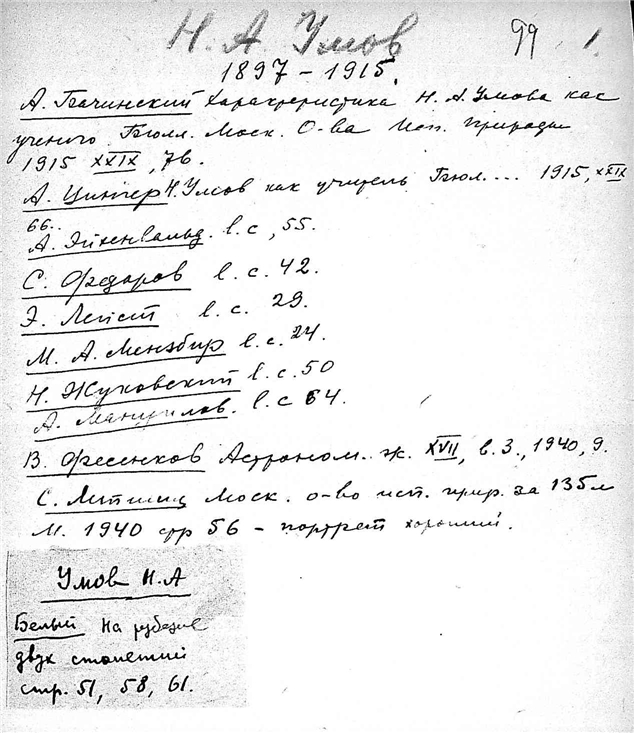 Н. А. Умов
99 1.
1897 – 1915.
А. Бачинский Характеристика Н. А. Умова как
ученого. Бюлл. Моск. О-ва Исп. Природы
1915 XXIX, 76.
А. Цингер Н. Умов как учитель Бюл.... 1915, XXIX
66..
А. Эйхенвальд. l. c, 55.
С. Федоров l. c. 42.
Э. Лейст l. c. 29.
М. А. Мензбир l. c. 24.
Н. Жуковский l. c. 50
А. Мануилов. l. c 64.
В. Фесенков Астроном. ж. XVII, в. 3., 1940, 9.
С. Липшиц Моск. о-во исп. прир. за 135 л
М. 1940 стр 56 – портрет хороший.
Умов Н.А
Белый На рубеже
двух столетий
стр. 51, 58, 61.